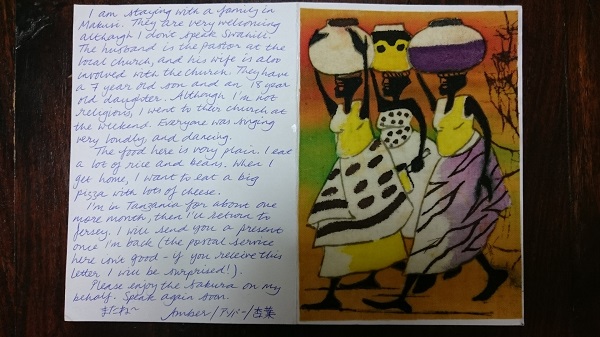 I am staying with a family in
Makusi. They are very welcoming
although I don't speak Swahili.
The husband is the pastor at the
local church, and his wife is also
involved with the church. They have
a 7 year old son and an 18 year
old daughter. Although I'm not
religious, I went to their church at
the weekend. Everyone was singing
very loudly and dancing.
The food here is very plain. I eat
a lot of rice and beans. When I
get home, I want to eat a big
pizza with lots of cheese.
I'm in Tanzania for about one
more month, then I'll return to
Jersey. I will send you a present
once I'm back (the postal service
here isn't good - if you receive this
letter I will be surprised!).
Please enjoy the sakura on my
behalf. Speak again soon.
またねー Amber/アンバー/杏葉